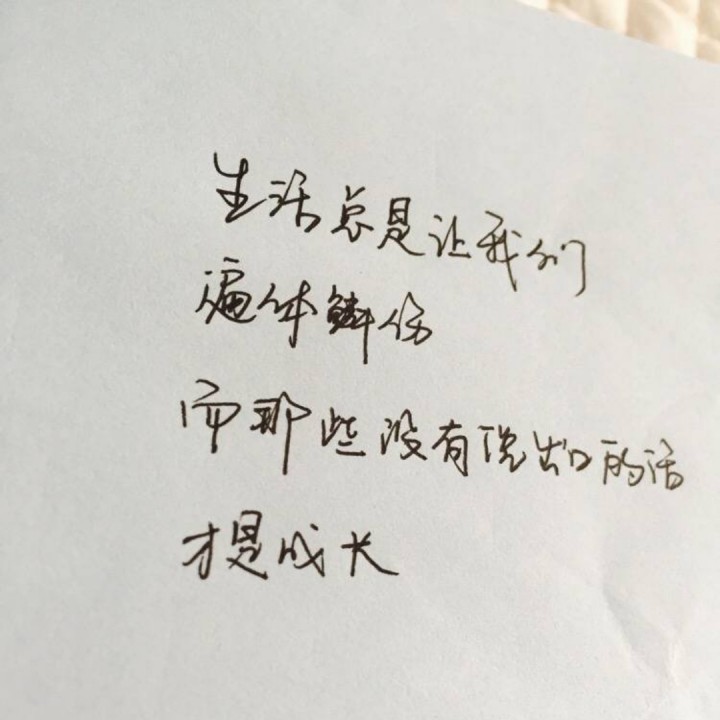 生活总是让我们
遍体鳞伤
而那些没有说出口的话
才是成长